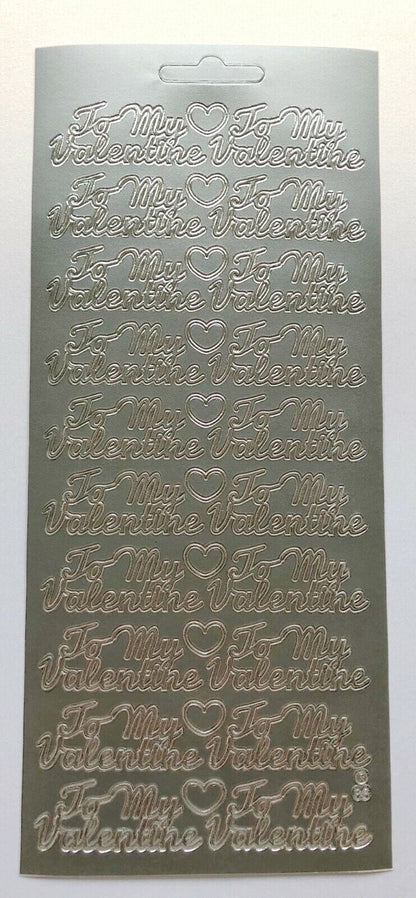 To My ♡ To My
Valentine Valentine
To My ♡ To My
Valentine Valentine
To My ♡ To My
Valentine Valentine
To My ♡ To My
Valentine Valentine
To My ♡ To My
Valentine Valentine
To My ♡ To My
Valentine Valentine
To My ♡ To My
Valentine Valentine
To My ♡ To My
Valentine Valentine
To My ♡ To My
Valentine Valentine
To My ♡ To My
Valentine Valentine